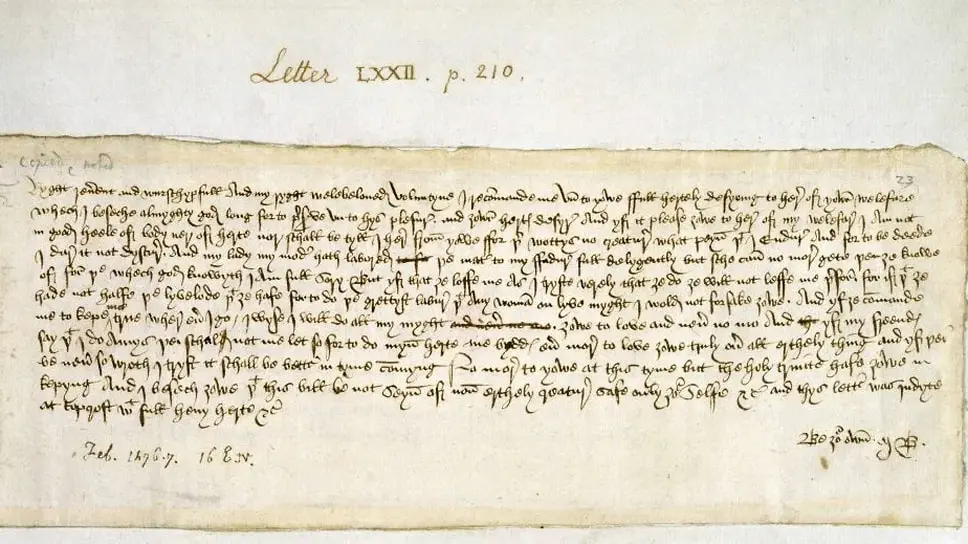 Letter LXXII. p. 210.
copied noted
23
Ryght reverent and wurschypfull and my ryght welebeloved Voluntyne I recomande me un to yowe ffull hertely desyring to here of yowr welefare
whech I beseche almyghty god long for to preserve un to hys plesur and yowr hertys desyre And yf it please yowe to here of my welefar I am not
in good heele of body ner of herte nor schall be tyll I here from yowe ffor þer wottys no creature what peyn þt I endure And for to be deede
I dure it not dyscure And my lady my moder hath labored þe mater to my ffadure full delygently but sche can no more gete þen ze knowe
of for þe whech god knowyth I am full sory But yf that ze loffe me as I tryste verely that ze do ze will not leffe me þerfor for if þt ze
hade not halfe þe lyvelode þt ze hafe for to do þe grettyst labure þt any woman on lyve myght I wold not forsake zowe And yf ze comande
me to kepe me true wher ever I go I wyse I will do all my myght zowe to love and never no mo And yf my freendes
say þt I do amys þei schal not me let so for to do myn herte me byddys ever more to love zowe truly over all erthely thing and yf þei
be never so wroth I tryst it schall be better in tyme comyng No more to yowe at this tyme but the holy trinite hafe zowe in
kepyng And I besech zowe þt this bill be not seyn of non erthely creature safe only zour selfe &c and thys letter was indyte
at topcroft wt full hevy herte &c
Be zour own M B.
Feb. 1476-7. 16 E. IV.